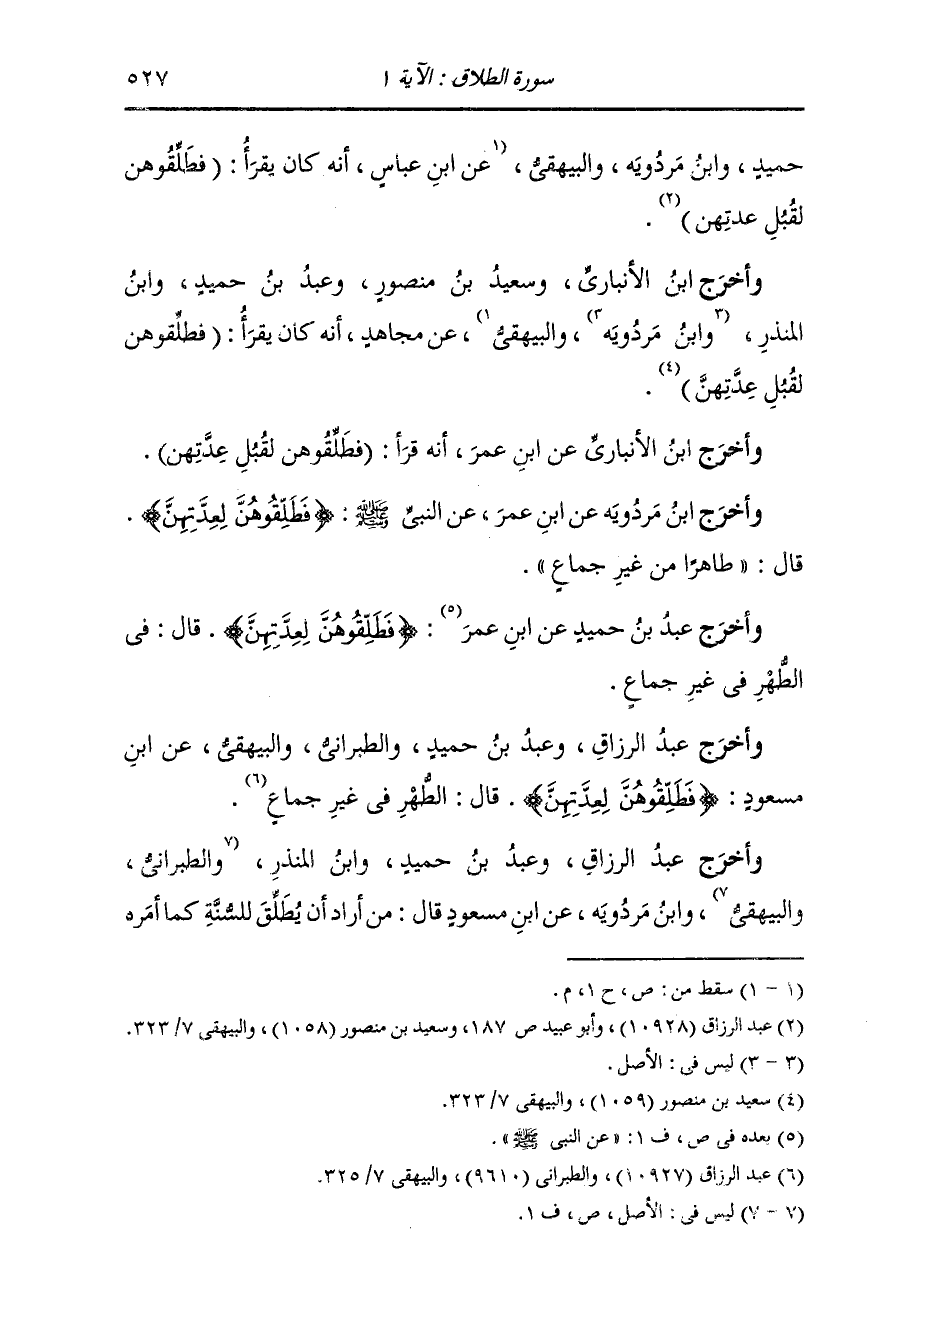 سورة الطلاق : الآية ١ ٥٢٧
حميدٍ ، وابنُ مَردُويَه ، والبيهقىُّ ، (١عن ابنِ عباسٍ ، أنه كان يقرَأُ : ( فطَلِّقُوهن
لقُبُلِ عدتِهن )(٢) .
وأخرَج ابنُ الأنبارىِّ ، وسعيدُ بنُ منصورٍ ، وعبدُ بنُ حميدٍ ، وابنُ
المنذرِ ، (٣وابنُ مَردُويَه٣) ، والبيهقىُّ١) ، عن مجاهدٍ ، أنه كان يقرَأُ : ( فطلِّقوهن
لقُبُلِ عِدَّتِهنَّ )(٤) .
وأخرَج ابنُ الأنبارىِّ عن ابنِ عمرَ ، أنه قرَأ : (فطَلِّقُوهن لقُبُلِ عِدَّتِهن) .
وأخرَج ابنُ مَردُويَه عن ابنِ عمرَ ، عن النبىِّ ﷺ : ﴿فَطَلِّقُوهُنَّ لِعِدَّتِهِنَّ﴾ .
قال : « طاهرًا من غيرِ جماعٍ » .
وأخرَج عبدُ بنُ حميدٍ عن ابنِ عمرَ(٥) : ﴿فَطَلِّقُوهُنَّ لِعِدَّتِهِنَّ﴾ . قال : فى
الطُّهْرِ فى غيرِ جماعٍ .
وأخرَج عبدُ الرزاقِ ، وعبدُ بنُ حميدٍ ، والطبرانىُّ ، والبيهقىُّ ، عن ابنِ
مسعودٍ : ﴿فَطَلِّقُوهُنَّ لِعِدَّتِهِنَّ﴾ . قال : الطُّهْرِ فى غيرِ جماعٍ(٦) .
وأخرَج عبدُ الرزاقِ ، وعبدُ بنُ حميدٍ ، وابنُ المنذرِ ، (٧والطبرانىُّ ،
والبيهقىُّ٧) ، وابنُ مَردُويَه ، عن ابنِ مسعودٍ قال : من أراد أن يُطَلِّقَ للسُّنَّةِ كما أمَره
(١ - ١) سقط من : ص ، ح ١، م .
(٢) عبد الرزاق (١٠٩٢٨) ، وأبو عبيد ص ١٨٧، وسعيد بن منصور (١٠٥٨) ، والبيهقى ٣٢٣/٧.
(٣ - ٣) ليس فى : الأصل .
(٤) سعيد بن منصور (١٠٥٩) ، والبيهقى ٣٢٣/٧.
(٥) بعده فى ص ، ف ١: «عن النبى ﷺ» .
(٦) عبد الرزاق (١٠٩٢٧) ، والطبرانى (٩٦١٠) ، والبيهقى ٣٢٥/٧.
(٧ - ٧) ليس فى : الأصل ، ص ، ف ١.